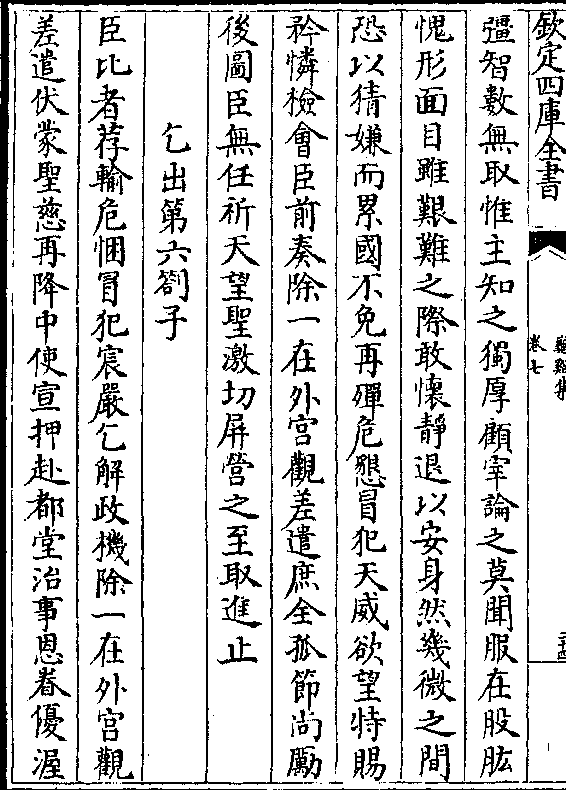 欽定四庫全書
卷七
彊智數無取惟主知之獨厚顧宰論之莫聞服在股肱
愧形面目雖艱難之際敢懷靜退以安身然幾微之間
恐以猜嫌而累國不免再殫危懇冒犯天威欲望特賜
矜憐檢會臣前奏除一在外宮觀差遣庶全孤節尚勵
後圖臣無任祈天望聖激切屏營之至取進止
乞出第六劄子
臣比者荐輸危悃冒犯宸嚴乞解政機除一在外宮觀
差遣伏蒙聖慈再降中使宣押赴都堂治事恩眷優渥